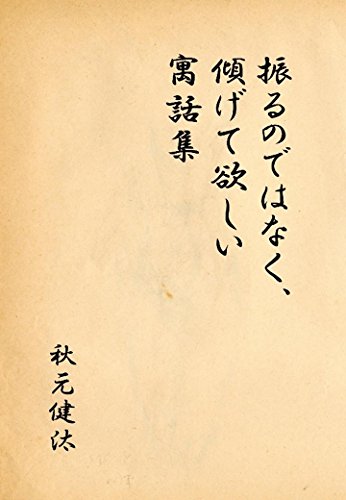 振るのではなく、
傾げて欲しい
寓話集
秋元健汰